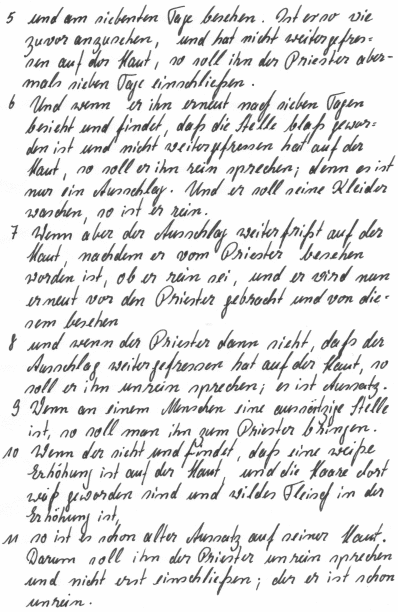 5 und am siebenten Tage besehen. Ist er so wie
zuvor anzusehen, und hat nicht weitergefres=
sen auf der Haut, so soll ihn der Priester aber-
mals sieben Tage einschließen.
6 Und wenn er ihn erneut nach sieben Tagen
besieht und findet, daß die Stelle blaß gewor=
den ist und nicht weitergefressen hat auf der
Haut, so soll er ihn rein sprechen; denn es ist
nur ein Ausschlag. Und er soll seine Kleider
waschen, so ist er rein.
7 Wenn aber der Ausschlag weiterfrißt auf der
Haut, nachdem er vom Priester besehen
worden ist, ob er rein sei, und er wird nun
erneut vor den Priester gebracht und von die-
sem besehen
8 und wenn der Priester dann sieht, daß der
Ausschlag weitergefressen hat auf der Haut, so
soll er ihn unrein sprechen; es ist Aussatz.
9 Wenn an einem Menschen eine aussätzige Stelle
ist, so soll man ihn zum Priester bringen.
10 Wenn der sieht und findet, daß eine weiße
Erhöhung ist auf der Haut, und die Haare dort
weiß geworden sind und wildes Fleisch in der
Erhöhung ist,
11 so ist es schon alter Aussatz auf seiner Haut.
Darum soll ihn der Priester unrein sprechen
und nicht erst einschließen; der er ist schon
unrein.